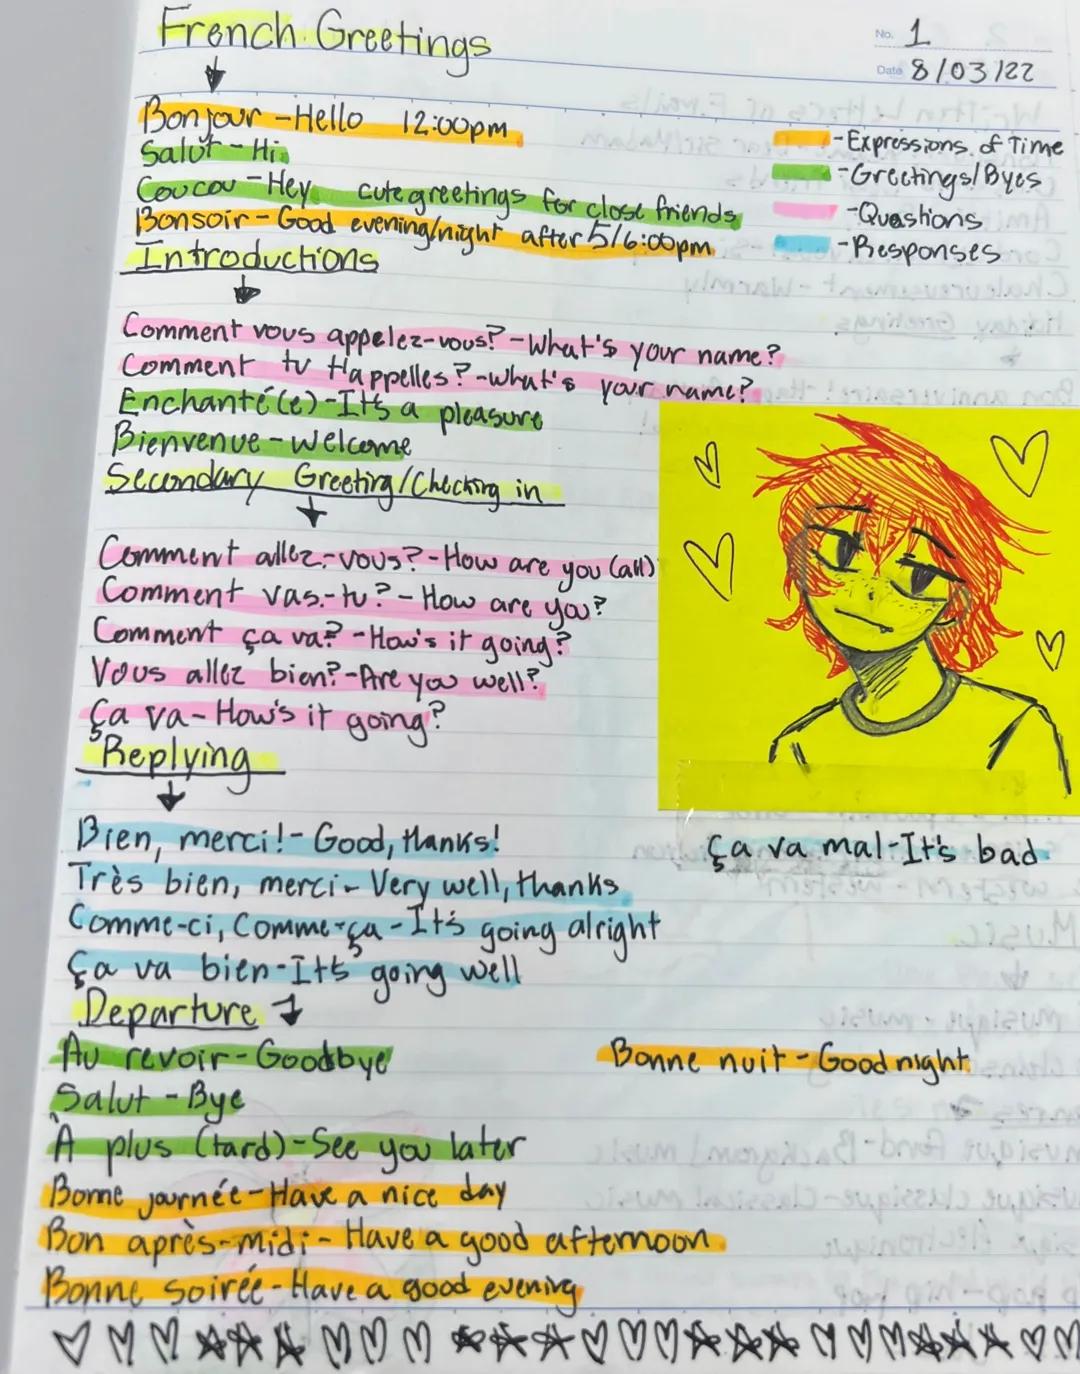 French Greetings
No. 1
Date 8/03/22
Bonjour - Hello 12:00pm
Salut - Hi
Coucou - Hey cute greetings for close friends
Bonsoir - Good evening/night after 5/6:00pm
- Expressions of Time
- Greetings/Byes
- Quashions
- Responses
Introductions
Comment vous appelez-vous? - What's your name?
Comment tu t'appelles? - what's your name?
Enchanté(e) - It's a pleasure
Bienvenue - Welcome
Secondary Greeting/Checking in
Comment allez-vous? - How are you (all)
Comment vas-tu? - How are you?
Comment ça va? - How's it going?
Vous allez bien? - Are you well?
Ça va - How's it going?
Replying
Bien, merci! - Good, thanks!
Très bien, merci - Very well, thanks
Comme-ci, Comme-ça - It's going alright
Ça va bien - It's going well
Ça va mal - It's bad
Departure
Au revoir - Goodbye
Bonne nuit - Good night
Salut - Bye
À plus (tard) - See you later
Bonne journée - Have a nice day
Bon après-midi - Have a good afternoon
Bonne soirée - Have a good evening